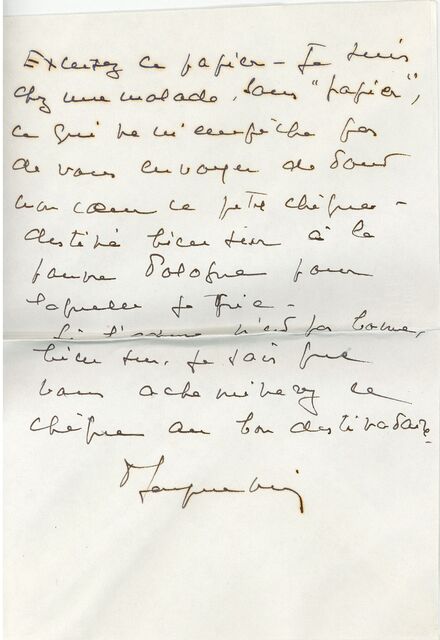 Excusez ce papier - Je suis
chez une malade, sans "papier",
ce qui ne m'empêche pas
de vous envoyer de tout
mon cœur ce petit chèque -
destiné bien sûr à la
pauvre Pologne pour
laquelle je prie -
Si l'adresse n'est pas bonne,
bien sûr, je sais que
vous acheminerez ce
chèque au bon destinataire